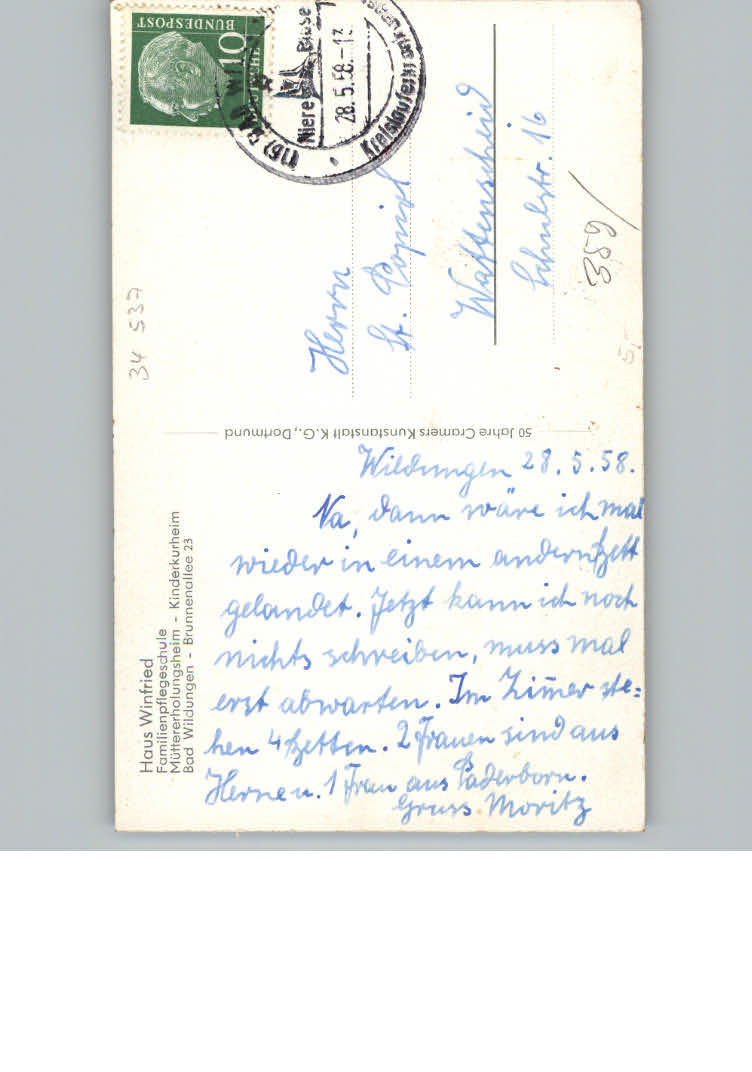 Haus Winfried
Familienpflegeschule
Müttererholungsheim – Kinderkurheim
Bad Wildungen - Brunnenallee 23
Wildungen 28.5.58.
Na, dann wäre ich mal
wieder in einem andern Bett
gelandet. Jetzt kann ich noch
nichts schreiben, muss mal
erst abwarten. Im Zim̄er ste=
hen 4 Betten. 2 Frauen sind aus
Herne u. 1 Frau aus Paderborn.
Gruss Moritz
50 Jahre Cramers Kunstanstalt K.G., Dortmund
DEUTSCHE
BUNDESPOST
10
(16) BAD
Niere Blase
28.5.58.-13
Kreislauferkrankungen
Herrn
St.
Wattenscheid
Schulstr. 16
34 537
359/
5,-